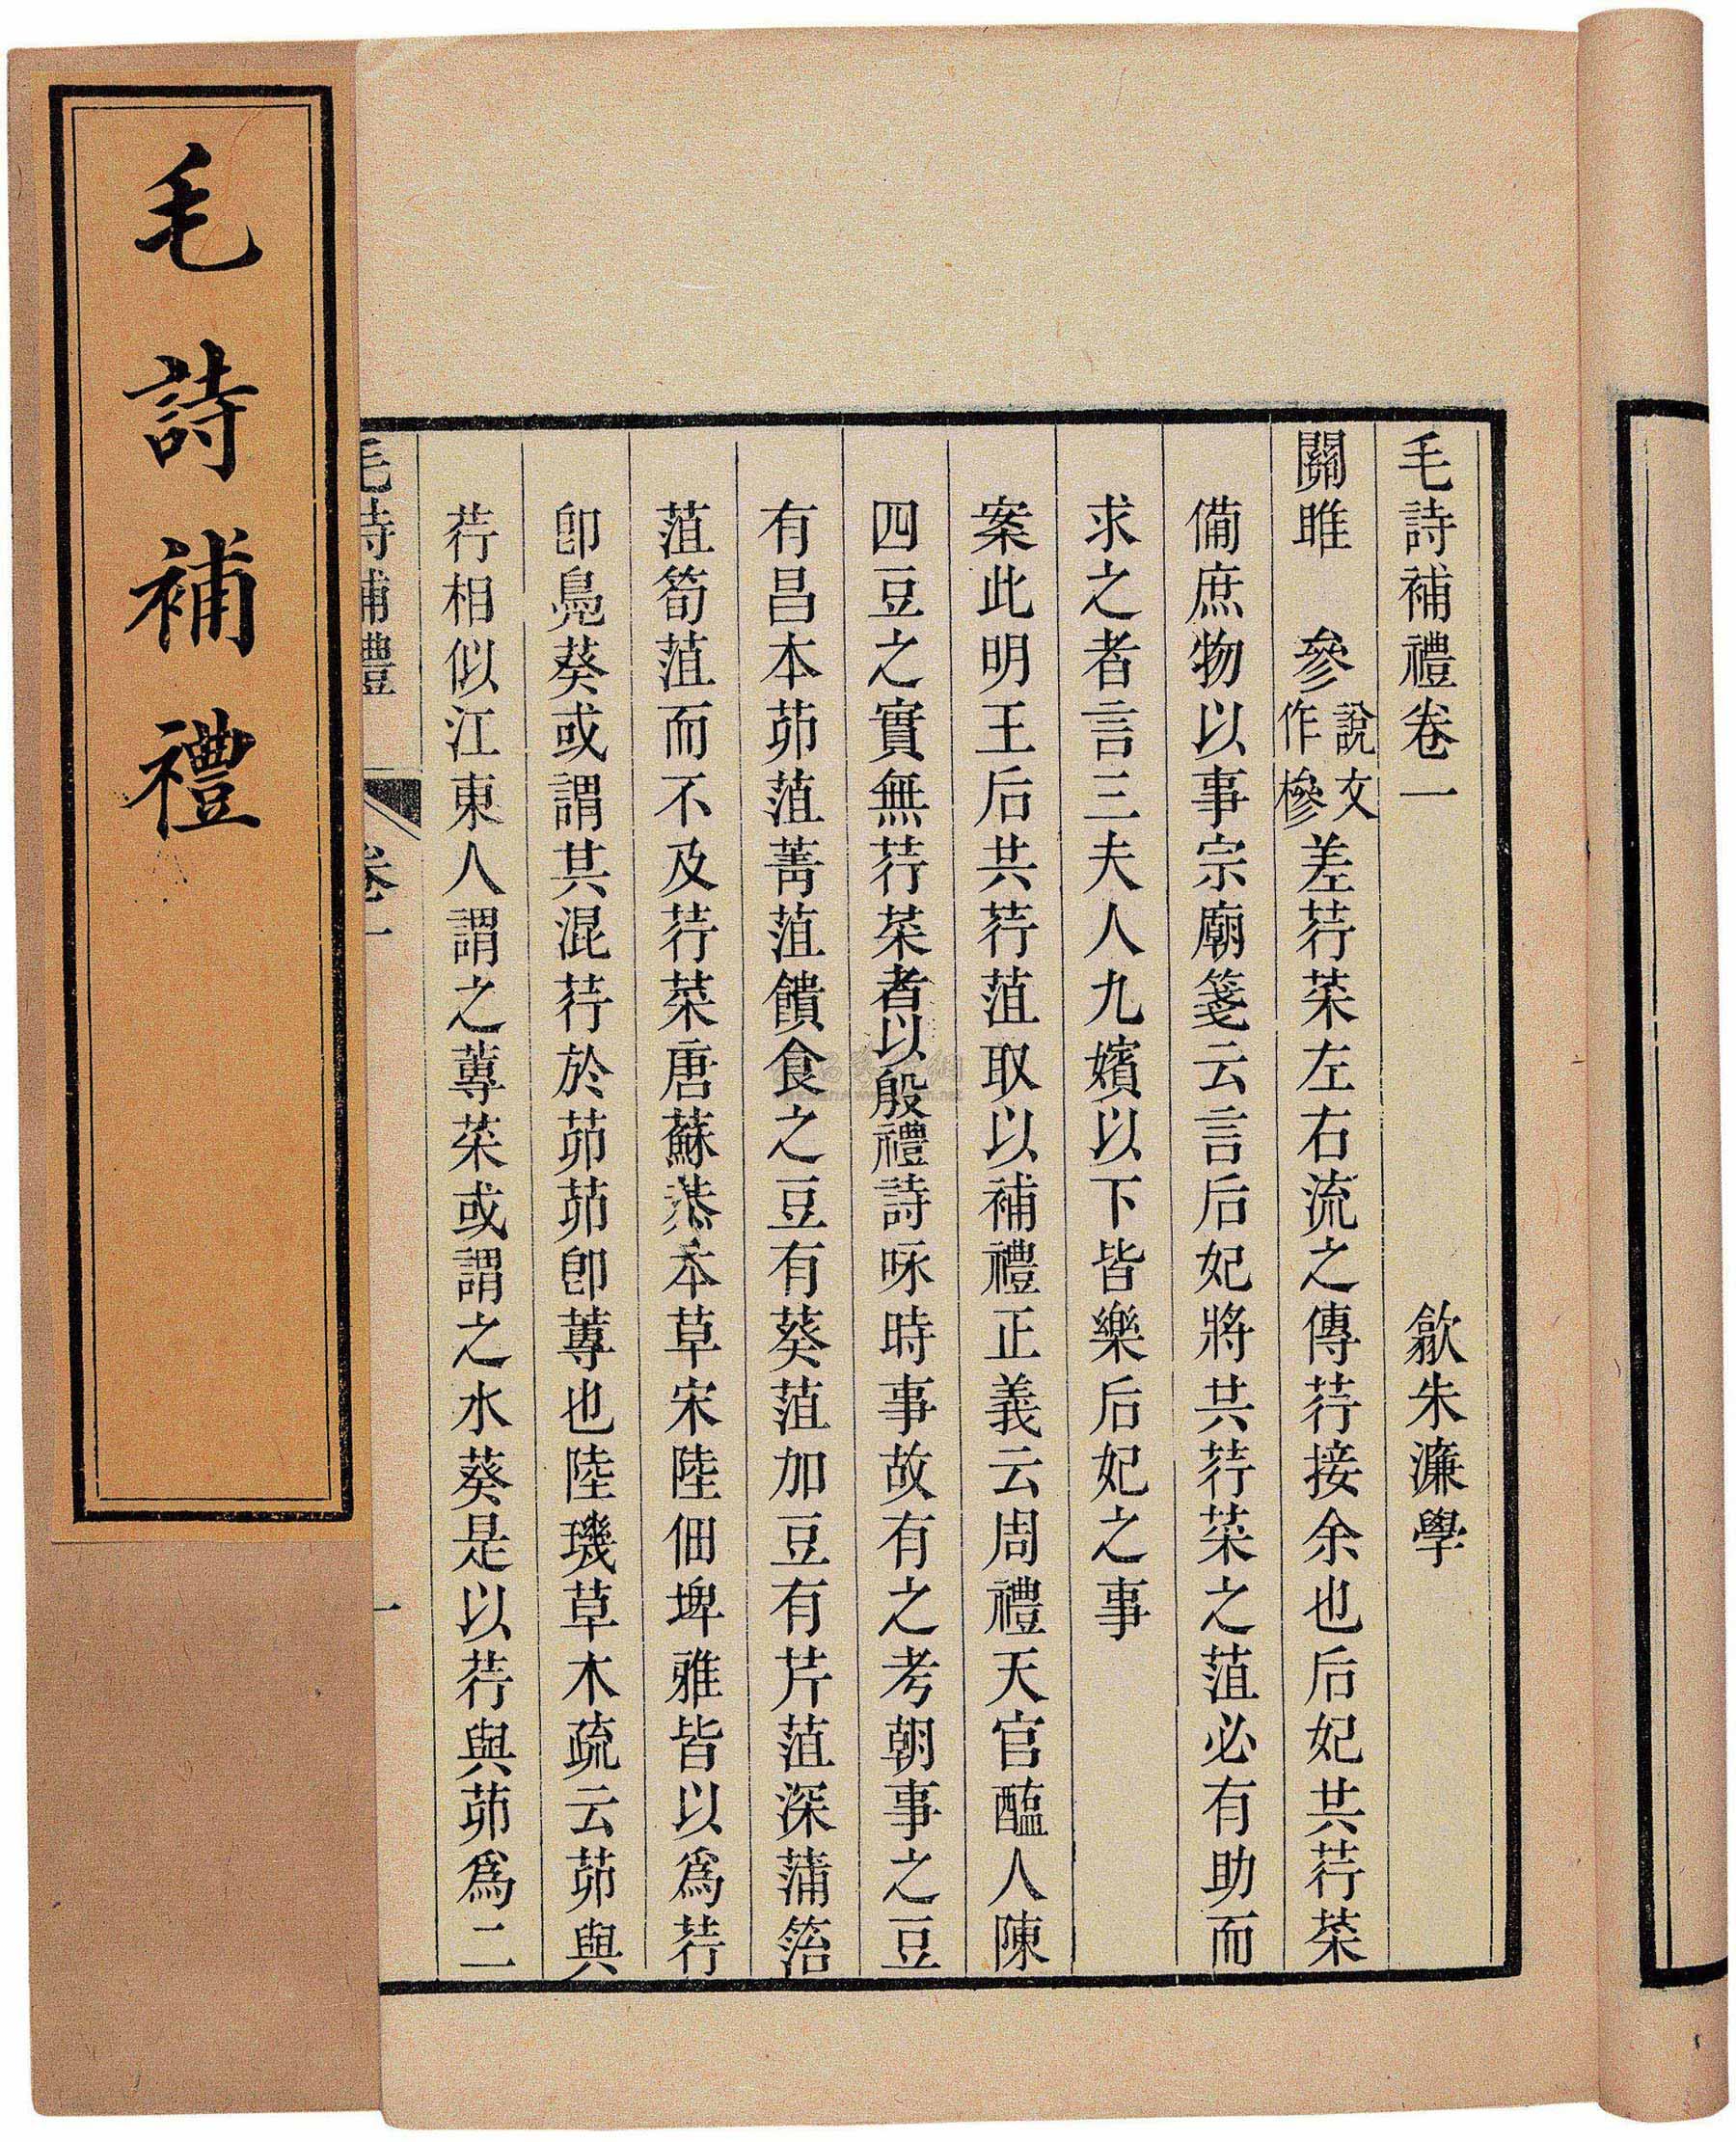 毛詩補禮
毛詩補禮卷一　歙朱濂學
關雎　參說文作槮差荇菜左右流之傳荇接余也后妃共荇菜
備庶物以事宗廟箋云言后妃將共荇菜之菹必有助而
求之者言三夫人九嬪以下皆樂后妃之事
案此明王后共荇菹取以補禮正義云周禮天官醢人陳
四豆之實無荇菜者以殷禮詩咏時事故有之考朝事之豆
有昌本茆菹菁菹饋食之豆有葵菹加豆有芹菹深蒲箈
菹筍菹而不及荇菜唐蘇恭本草宋陸佃埤雅皆以爲荇
卽鳧葵或謂其混荇於茆茆卽蓴也陸璣草木疏云茆與
荇相似江東人謂之蓴菜或謂之水葵是以荇與茆爲二
毛詩補禮　卷一　一